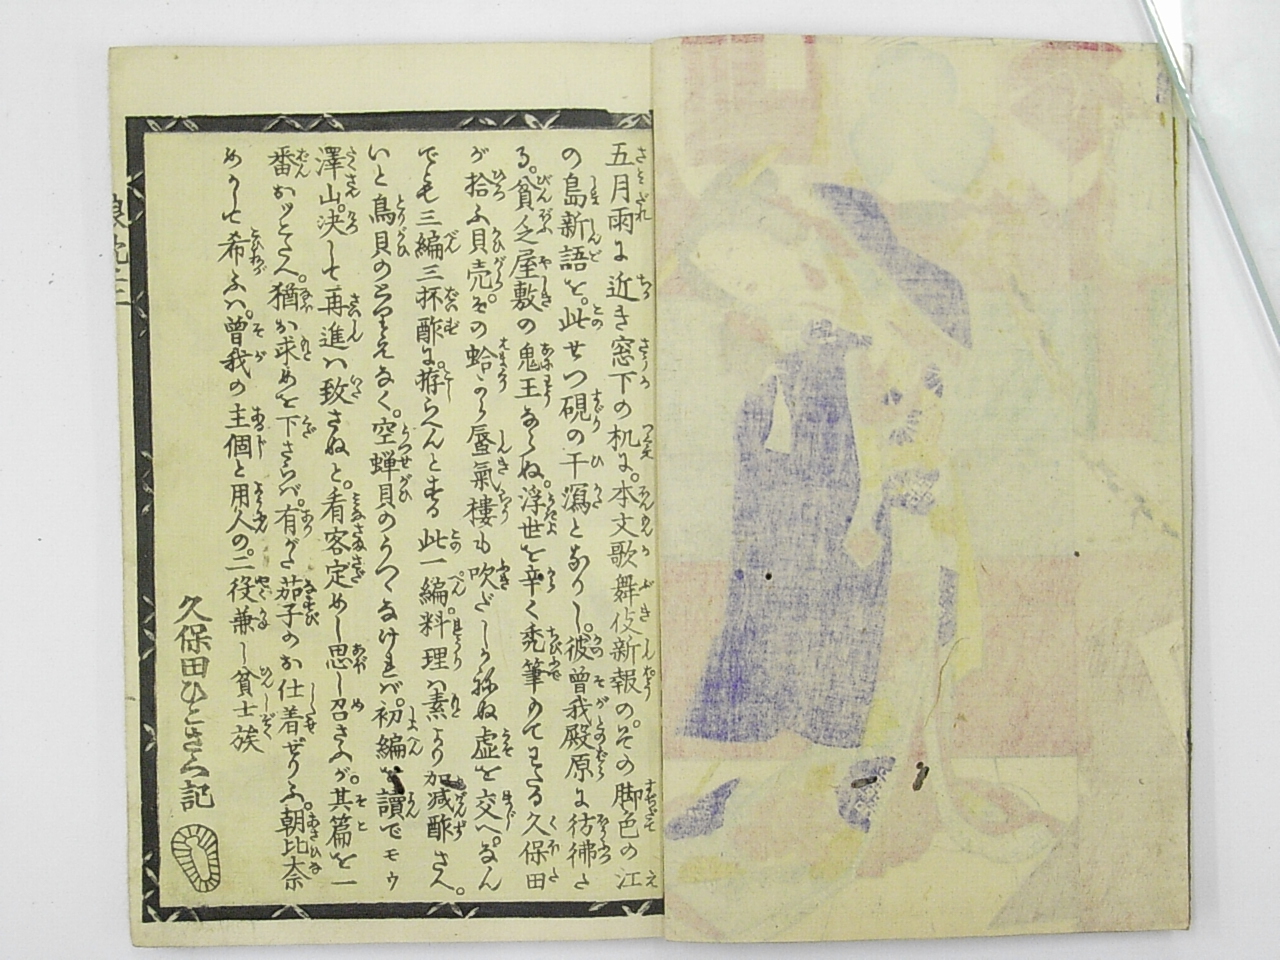 五月雨に近き窓下の机に。本文歌舞伎新報の。その脚色の江
の島新語を。此せつ硯の干潟となりし。彼曽我殿原に彷彿た
る。貧乏屋敷の鬼王ならね。浮世を辛く禿筆のてわたる久保田
が拾ふ貝売。その蛤から蜃氣楼も吹だしかねぬ虚を交へ。なん
でも三編三杯酢に。拵らへんとする此一編料理は素より加减酢さへ。
いと鳥貝のとりえなく。空蝉貝のうつゝなければ。初編を讀でモウ
澤山。决して再進は致さねと。看客定めし思し召さふが。其篇を一
番おツとさへ。猶お求めを下さらば。有がた茄子のお仕着ぜりふ。朝比奈
めかして希ふは。曽我の主個と用人の。二役兼し貧士族
久保田ひこさく記